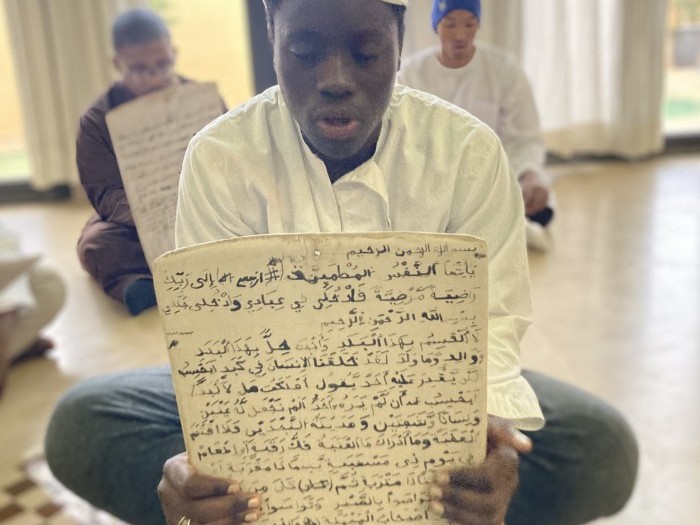 بسم الله الرحمن الرحيم
يأيتها النفس المطمينة ارجعي إلى ربك
راضية مرضية فادخلي في عبادي وادخلي جنتي
بسم الله الرحمن الرحيم
لا أقسم بهذا البلد وأنت حل بهذا البلد
ووالد وما ولد لقد خلقنا الإنسان في كبد أيحسب
لن يقدر عليه أحد يقول أهلكت مالا لبدا
أيحسب أن لم يره أحد ألم نجعل له عينين
ولسانا وشفتين وهديناه النجدين فلا اقتحم
العقبة وما أدراك ما العقبة فك رقبة أو إطعام
في يوم ذي مسغبة يتيما ذا مقربة
ذا متربة ثم كان من